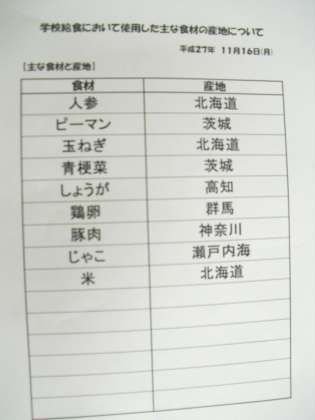 学校給食において使用した主な食材の産地について
平成27年 11月16日(月)
[主な食材と産地]
食材 産地
人参 北海道
ピーマン 茨城
玉ねぎ 北海道
青梗菜 茨城
しょうが 高知
鶏卵 群馬
豚肉 神奈川
じゃこ 瀬戸内海
米 北海道